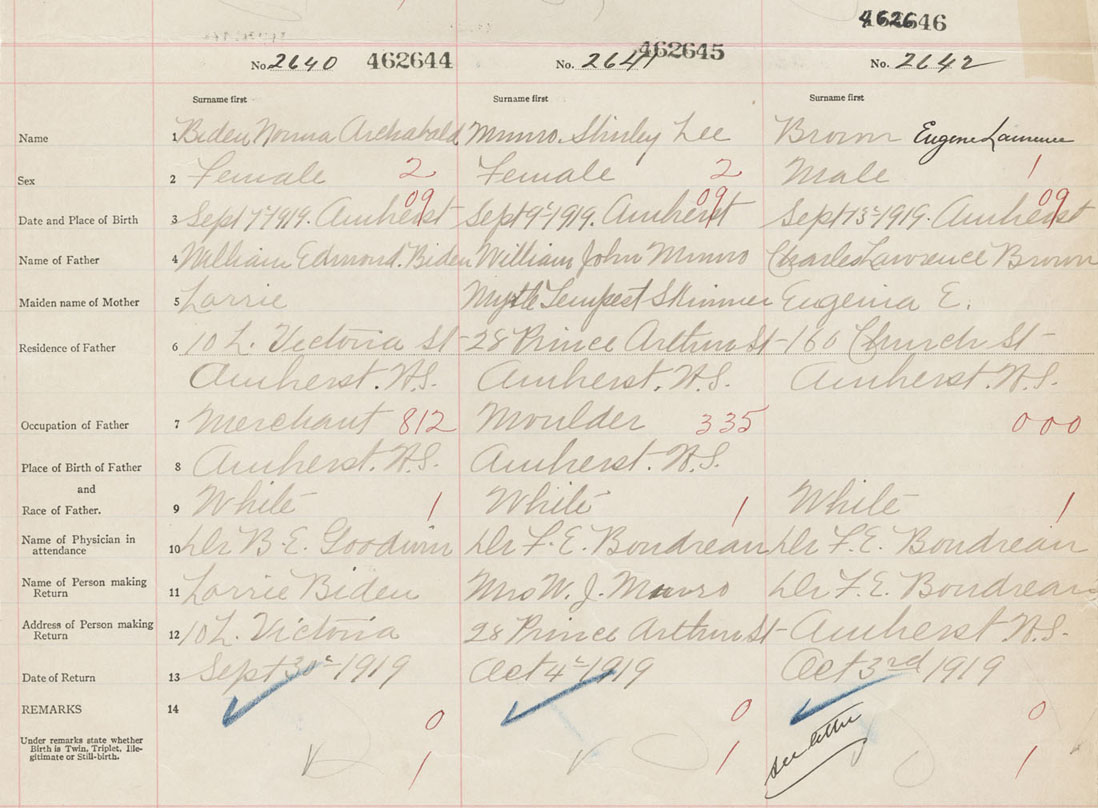 462646
No. 2640 462644 No. 2641 462645 No. 2642
Surname first Surname first Surname first
Name 1 Biden Norma Archabald Munro Shirley Lee Brown Eugene Lawrence
Sex 2 Female 2 Female 2 Male 1
09 09 09
Date and Place of Birth 3 Sept 7th 1919. Amherst Sept 9th 1919. Amherst Sept 13th 1919. Amherst
Name of Father 4 William Edmond. Biden William John Munro Charles Lawrence Brown
Maiden name of Mother 5 Lorrie Myrtle Tempest Skinner Eugenia E.
Residence of Father 6 10 L. Victoria St 28 Prince Arthur St 160 Church St
Amherst. N.S. Amherst. N.S. Amherst. N.S.
Occupation of Father 7 Merchant 812 Moulder 335 000
Place of Birth of Father 8 Amherst. N.S. Amherst. N.S.
and
Race of Father. 9 White 1 White 1 White 1
Name of Physician in
attendance 10 Dr B. E. Goodwin Dr F. E. Boudreau Dr F. E. Boudreau
Name of Person making
Return 11 Lorrie Biden Mrs W. J. Munro Dr F. E. Boudreau
Address of Person making
Return 12 10 L. Victoria 28 Prince Arthur St Amherst N.S.
Date of Return 13 Sept 30th 1919 Oct 4th 1919 Oct 3rd 1919
REMARKS 14 0 0 0
see
Under remarks state whether
Birth is Twin, Triplet, Ille-
gitimate or Still-birth. 1 1 1